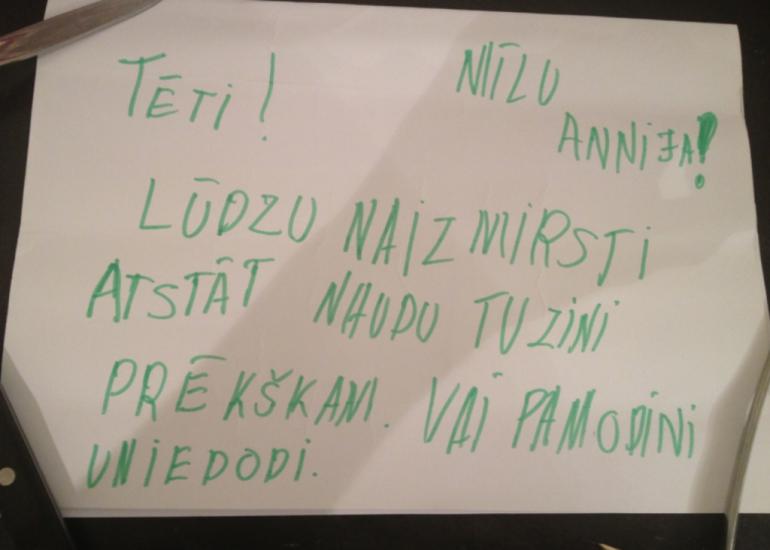 TĒTI!
MĪĻU
ANNIJA!
LŪDZU NAIZMIRSTI
ATSTĀT NAUDU TU ZINI
PRĒKŠKAM. VAI PAMODINI
UN IEDODI.